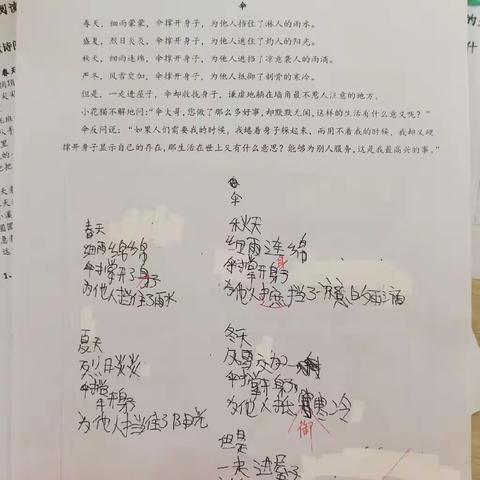 伞
春天，细雨蒙蒙，伞撑开身子，为他人挡住了淋人的雨水。
盛夏，烈日炎炎，伞撑开身子，为他人遮住了灼人的阳光。
秋天，细雨连绵，伞撑开身子，为他人遮挡了凉意袭人的雨滴。
严冬，风雪交加，伞撑开身子，为他人抵御了刺骨的寒冷。
但是，一走进屋子，伞却收拢身子，谦虚地躺在墙角最不惹人注意的地方。
小花猫不解地问："伞大哥，您做了那么多好事，却默默无闻，这样的生活有什么意义呢？"
伞反问说："如果人们需要我的时候，我蜷着身子躲起来，而用不着我的时候，我却又硬
撑开身子显示自己的存在，那生活在世上又有什么意思？能够为别人服务，这是我最高兴的事。"
伞
春天
细雨绵绵
伞撑开了身子
为他人挡住了雨水
夏天
烈日炎炎
伞撑
开身子
为他人挡住了阳光
秋天
细雨连绵
伞撑开身子
为他人
挡了
的雨滴
冬天
风雪交加
伞撑开身子
为他人抵
寒冷
御
但是
一走进屋子